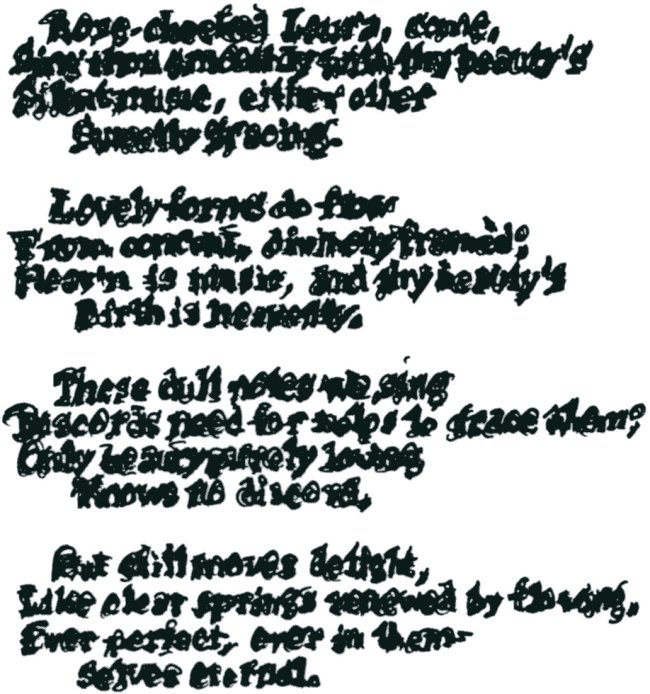 Rose-cheeked Laura, come,
Sing thou smoothly with thy beauty's
Silent music, either other
Sweetly gracing.
Lovely forms do flow
From concent, divinely framed;
Heav'n is music, and thy beauty's
Birth is heavenly.
These dull notes we sing
Discords need for helps to grace them;
Only beauty purely loving
Knows no discord,
But still moves delight,
Like clear springs renewed by flowing,
Ever perfect, ever in them-
selves eternal.